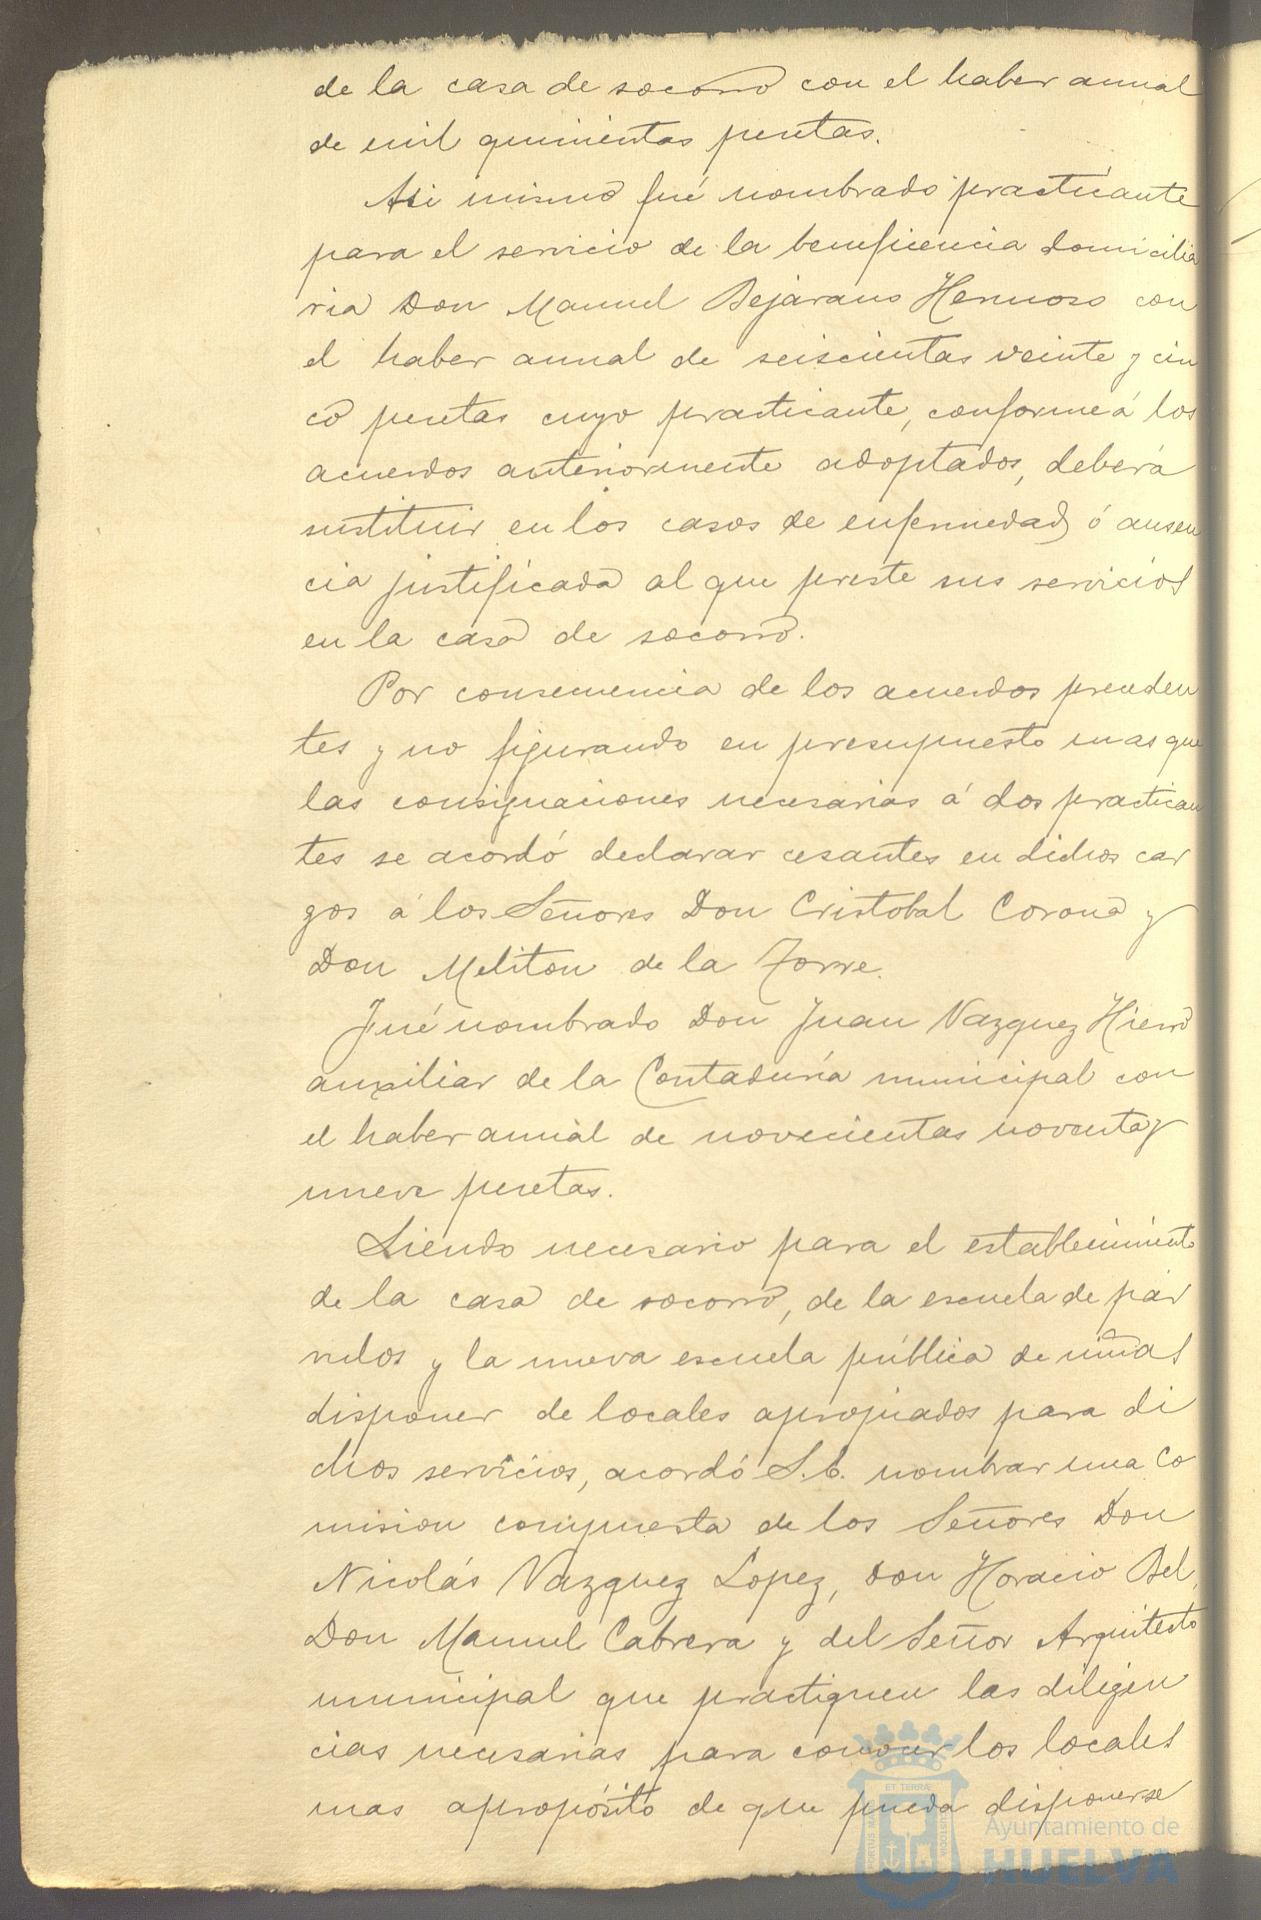 de la casa de socorro con el haber anual
de mil quinientas pesetas.
Asi mismo fué nombrado practicante
para el servicio de la beneficencia domicilia
ria Don Manuel Bejarano Hermoso con
el haber anual de seiscientas veinte y cin
co pesetas cuyo practicante, conforme á los
acuerdos anteriormente adoptados, deberá
sustituir en los casos de enfermedad ó ausen
cia justificada al que preste sus servicios
en la casa de socorro.
Por consecuencia de los acuerdos preceden
tes y no figurando en presupuesto mas que
las consignaciones necesarias á dos practican
tes se acordó declarar cesantes en dichos car
gos á los Señores Don Cristobal Corona y
Don Meliton de la Torre.
Fué nombrado Don Juan Vazquez Hierro
auxiliar de la Contaduría municipal con
el haber anual de novecientas noventa y
nueve pesetas.
Siendo necesario para el establecimiento
de la casa de socorro, de la escuela de pár
vulos y la nueva escuela pública de niñas
disponer de locales apropiados para di
chos servicios, acordó S.E. nombrar una Co
mision compuesta de los Señores Don
Nicolás Vazquez Lopez, Don Horacio Bel,
Don Manuel Cabrera y del Señor Arquitecto
municipal que practiquen las diligen
cias necesarias para conocer los locales
mas apropósito de que pueda disponerse
ET TERRÆ
PORTUS MARIS
CUSTODIA
Ayuntamiento de
HUELVA